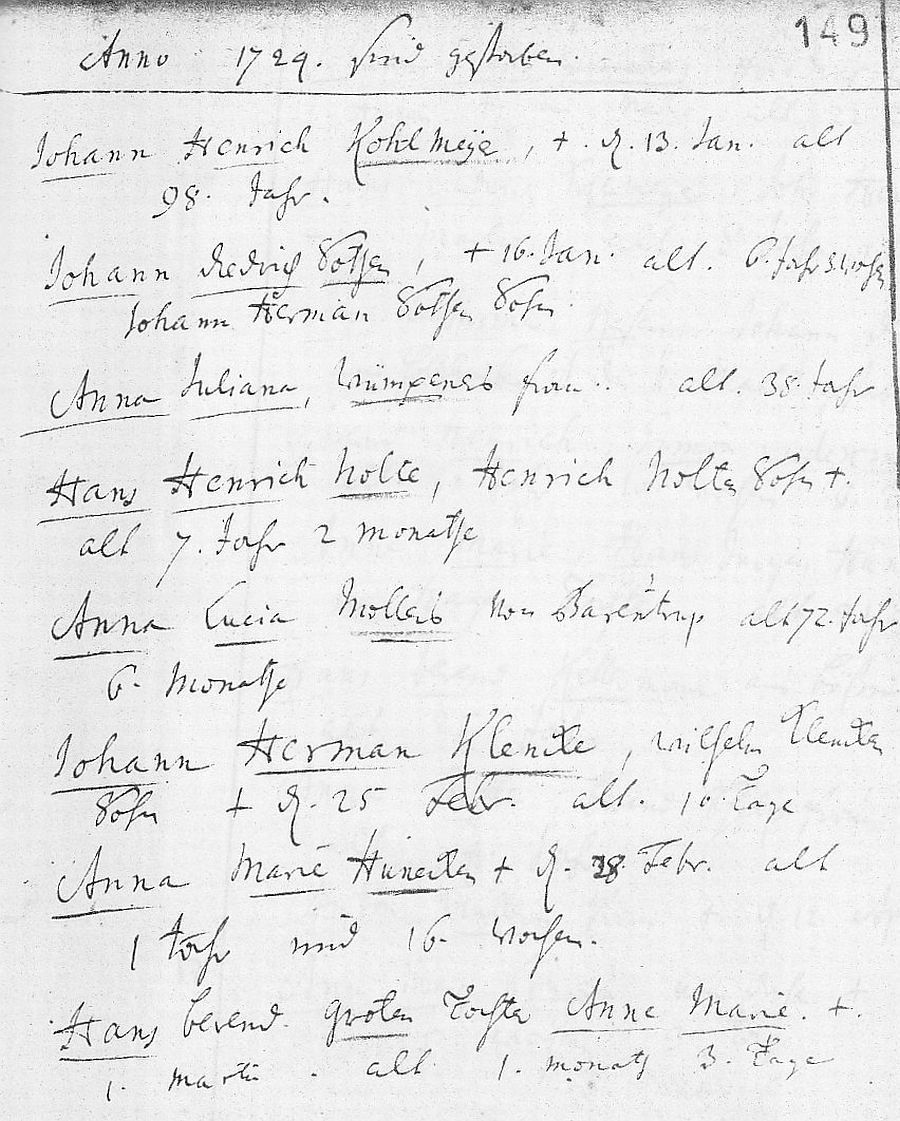 149
Anno 1729. sind gestorben.
Johann Henrich Kohlmeÿe, + d. 13. Jan. alt
98. Jahr.
Johann Diedrich +16. Jan. alt. 6. Jahr 3 woch
Johann Herman Sohn
Anna Juliana, frau. alt. 38. Jahr
Hans Henrich Nolte, Henrich Nolten Sohn +.
alt 7. Jahr 2 monathe
Anna Lucia Mollers von Barentrup alt 72. Jahr
6. Monathe
Johann Herman Klencke, Wilhelm Klencken
Sohn + d. 25 Febr. alt. 10. Tage
Anna Marie Hunecken + d. 28. Febr. alt
1 Jahr und 16. wochen.
Hans berend. groten Tochter Anne Marie. +.
1. martii. alt 1. monath 3. Tage